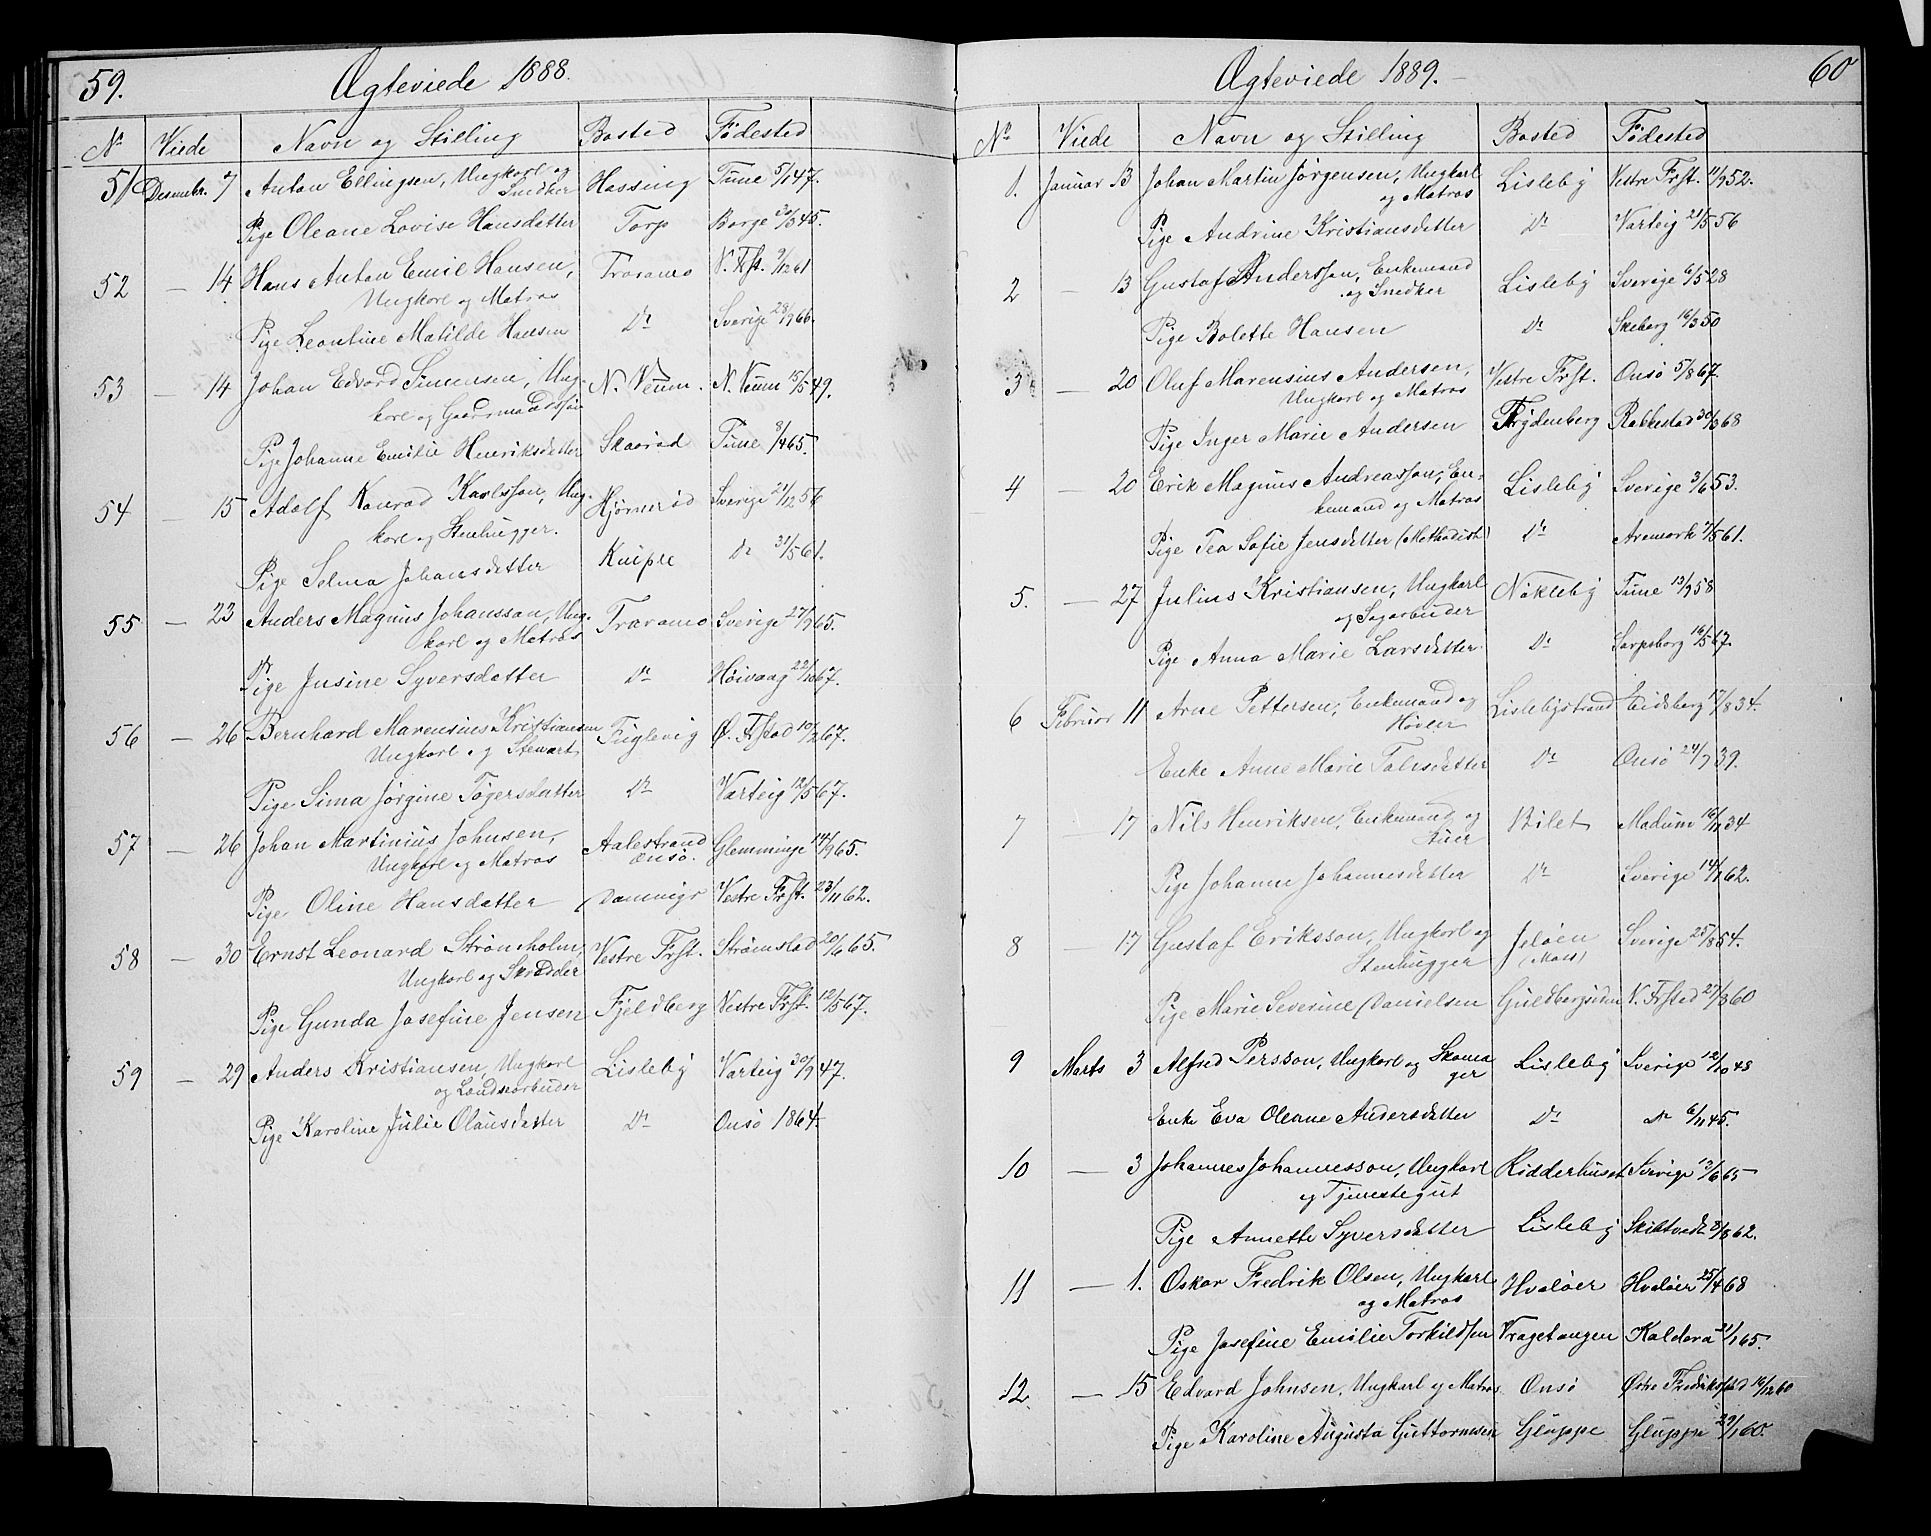 59. Ægteviede 1888.
Nr. Viede Navn og Stilling Bosted Fødested
51 Desembr. 7 Anton Ellingsen, Ungkarl og Hassing Tune 5/1 47.
Snedker
Pige Oleane Lovise Hansdatter Torp Borge 30/3 45.
52 — 14 Hans Anton Emil Hansen, Traramo N. Frst. 9/12 61
Ungkarl og Matros
Pige Leontine Matilde Hansen Do Sverige 28/1 66.
53 — 14 Johan Edvard Simensen, Ung- N. Veum. N. Veum 15/5 49.
karl og Gaardmandssøn
Pige Johanne Emilie Henriksdatter Skaarad Tune 8/4 65.
54 — 15 Adolf Konrad Karlsson, Ung- Hjørnerød Sverige 21/12 56
karl og Stenhugger.
Pige Selma Johansdatter Knipre Do 31/5 61.
55 — 23 Anders Magnus Johansson, Ung- Traramo Sverige 27/9 65.
karl og Matros
Pige Jusine Syversdatter Do Høivaag 22/10 67.
56 — 26 Bernhard Marensius Kristiansen Fuglevig Ø. Frstad 10/2 67.
Ungkarl og Stewart
Pige Sima Jørgine Tøgersdatter Do Varteig 12/5 67.
57 — 26 Johan Martinius Johnsen, Aalestrand Glemminge 14/9 65.
Ungkarl og Matros Onsø.
Pige Oline Hansdatter Damvigs Vestre Frst. 23/11 62.
58 — 30 Ernst Leonard Strömholm, Vestre Frst. Strømstad 20/6 65.
Ungkarl og Skrædder
Pige Gunda Josefine Jensen Fjeldberg Vestre Frst. 12/5 67.
59 — 29 Anders Kristiansen, Ungkarl Lisleby Varteig 30/9 47.
og Landsarbeider
Pige Karoline Julie Olausdatter Do Onsø 1864.
Ægteviede 1889. 60
Nr. Viede Navn og Stilling Bosted Fødested
1. Januar 13 Johan Martin Jørgensen, Ungkarl Lisleby Vestre Frst. 11/9 52.
og Matros
Pige Andrine Kristiansdatter Do Varteig 21/5 56
2 — 13 Gustaf Andersson, Enkemand Lisleby Sverige 6/5 28
og Snedker
Pige Bolette Hansen Do Skeberg 16/3 50
3 — 20 Oluf Marensius Andersen, Vestre Frst. Onsø 5/8 67.
Ungkarl og Matros
Pige Inger Marie Andersen Frydenberg Rakkestad 30/3 68
4 — 20 Erik Magnus Andreasson, En- Lisleby Sverige 3/6 53.
kemand og Matros
Pige Tea Sofie Jensdatter (Methodist) Do Aremark 7/5 61.
5. — 27 Julius Kristiansen, Ungkarl Nøkleby Tune 13/9 58
og Sagarbeider
Pige Anna Marie Larsdatter Do Sarpsborg 16/5 67.
6 Februar 11 Arne Pettersen, Enkemand og Lislebystrand Eidsberg 17/8 34.
Høvler
Enke Anne Marie Talisdatter Do Onsø 24/7 39.
7 — 17 Nils Henriksen, Enkemand og Bilet Modum 16/11 34
Stuer
Pige Johanne Johannesdatter Do Sverige 14/1 62.
8 — 17 Gustaf Eriksson, Ungkarl og Jeløen Sverige 25/8 54.
Stenhugger (Moss)
Pige Marie Severine Danielsen Guldbergsiden V. Frsted 27/8 60
9 Marts 3 Alfred Persson, Ungkarl og Skoma Lisleby Sverige 12/10 48
ger
Enke Eva Oleane Andersdatter Do Do 6/11 45.
10 — 3 Johannes Johannesson, Ungkarl Ridderhuset Sverige 13/6 65
og Tjenestegut
Pige Annette Syversdatter Lisleby Skibtvedt 8/8 62.
11 — 1. Oskar Fredrik Olsen, Ungkarl Hvaløer Hvaløer 25/4 68
og Matros
Pige Josefine Emilie Torkildsen Vragetangen Kaldera 21/1 65.
12. — 15 Edvard Johnsen, Ungkarl og Matros Onsø Østre Fredriksstad 16/12 60
Pige Karoline Augusta Guttormsen Gluppe Gluppe 29/1 60.